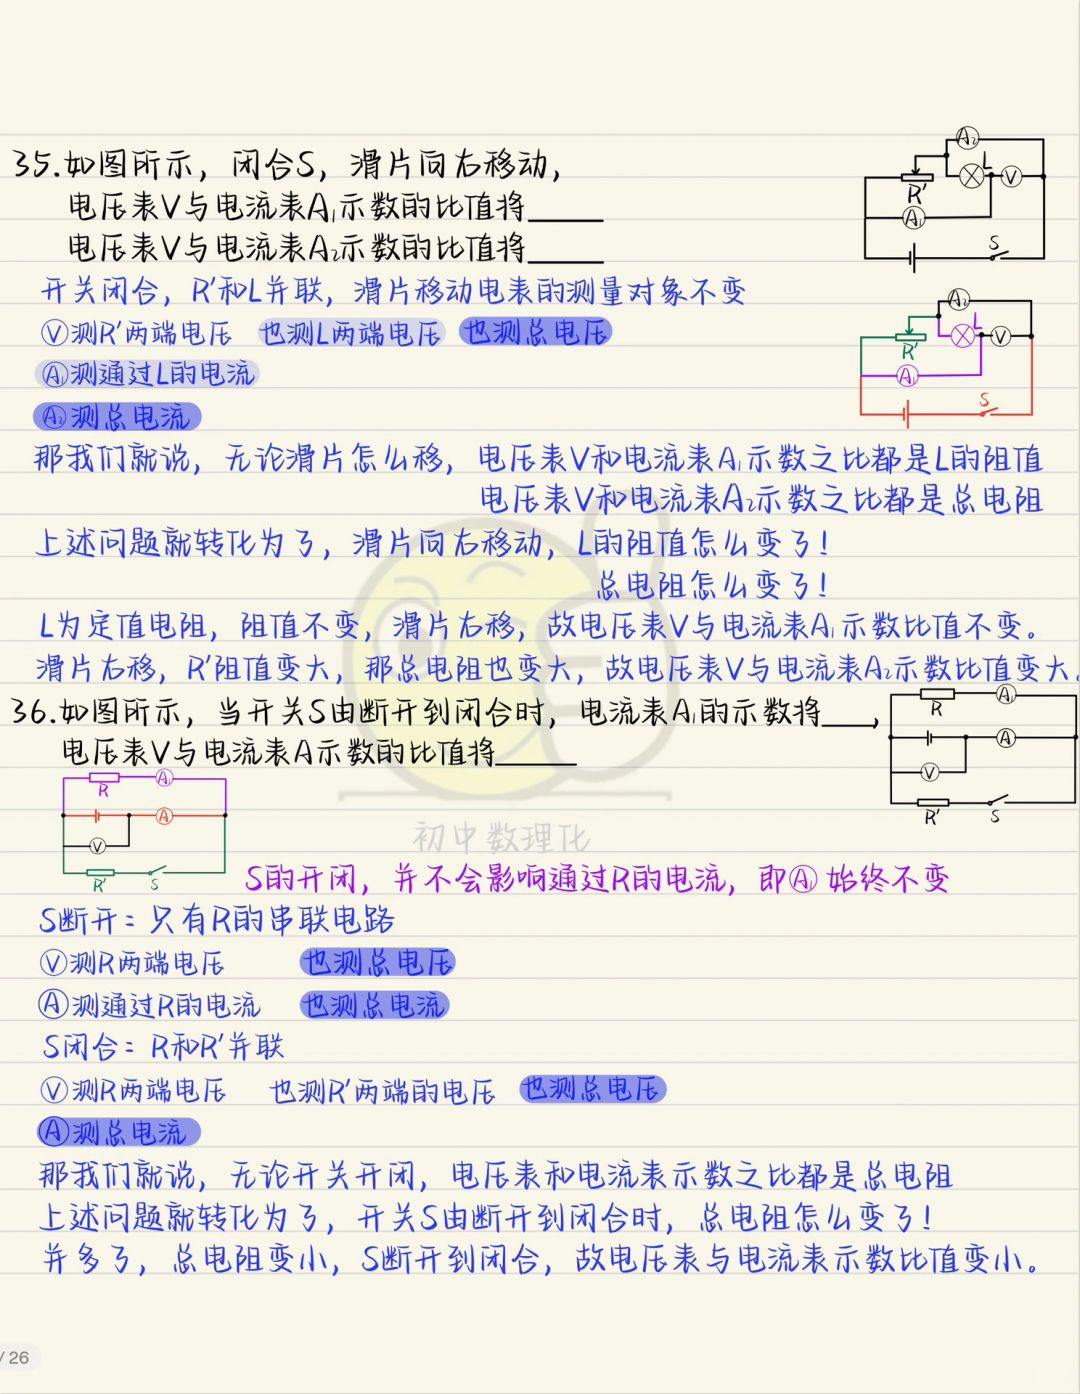 35.如图所示，闭合S，滑片向右移动，
电压表V与电流表A₁示数的比值将____
电压表V与电流表A₂示数的比值将____
A₂
L
V
R'
A₁
S
开关闭合，R'和L并联，滑片移动电表的测量对象不变
Ⓥ测R'两端电压 也测L两端电压 也测总电压
A₁测通过L的电流
A₂测总电流
A₂
L
V
R'
A₁
S
那我们就说，无论滑片怎么移，电压表V和电流表A₁示数之比都是L的阻值
电压表V和电流表A₂示数之比都是总电阻
上述问题就转化为了，滑片向右移动，L的阻值怎么变了！
总电阻怎么变了！
L为定值电阻，阻值不变，滑片右移，故电压表V与电流表A₁示数比值不变。
滑片右移，R'阻值变大，那总电阻也变大，故电压表V与电流表A₂示数比值变大。
36.如图所示，当开关S由断开到闭合时，电流表A₁的示数将____，
电压表V与电流表A示数的比值将____
R
A₁
A
V
R'
S
R
A₁
A
V
R'
S
初中数理化
S的开闭，并不会影响通过R的电流，即A₁始终不变
S断开：只有R的串联电路
Ⓥ测R两端电压 也测总电压
Ⓐ测通过R的电流 也测总电流
S闭合：R和R'并联
Ⓥ测R两端电压 也测R'两端的电压 也测总电压
Ⓐ测总电流
那我们就说，无论开关开闭，电压表和电流表示数之比都是总电阻
上述问题就转化为了，开关S由断开到闭合时，总电阻怎么变了！
并多了，总电阻变小，S断开到闭合，故电压表与电流表示数比值变小。
/ 26